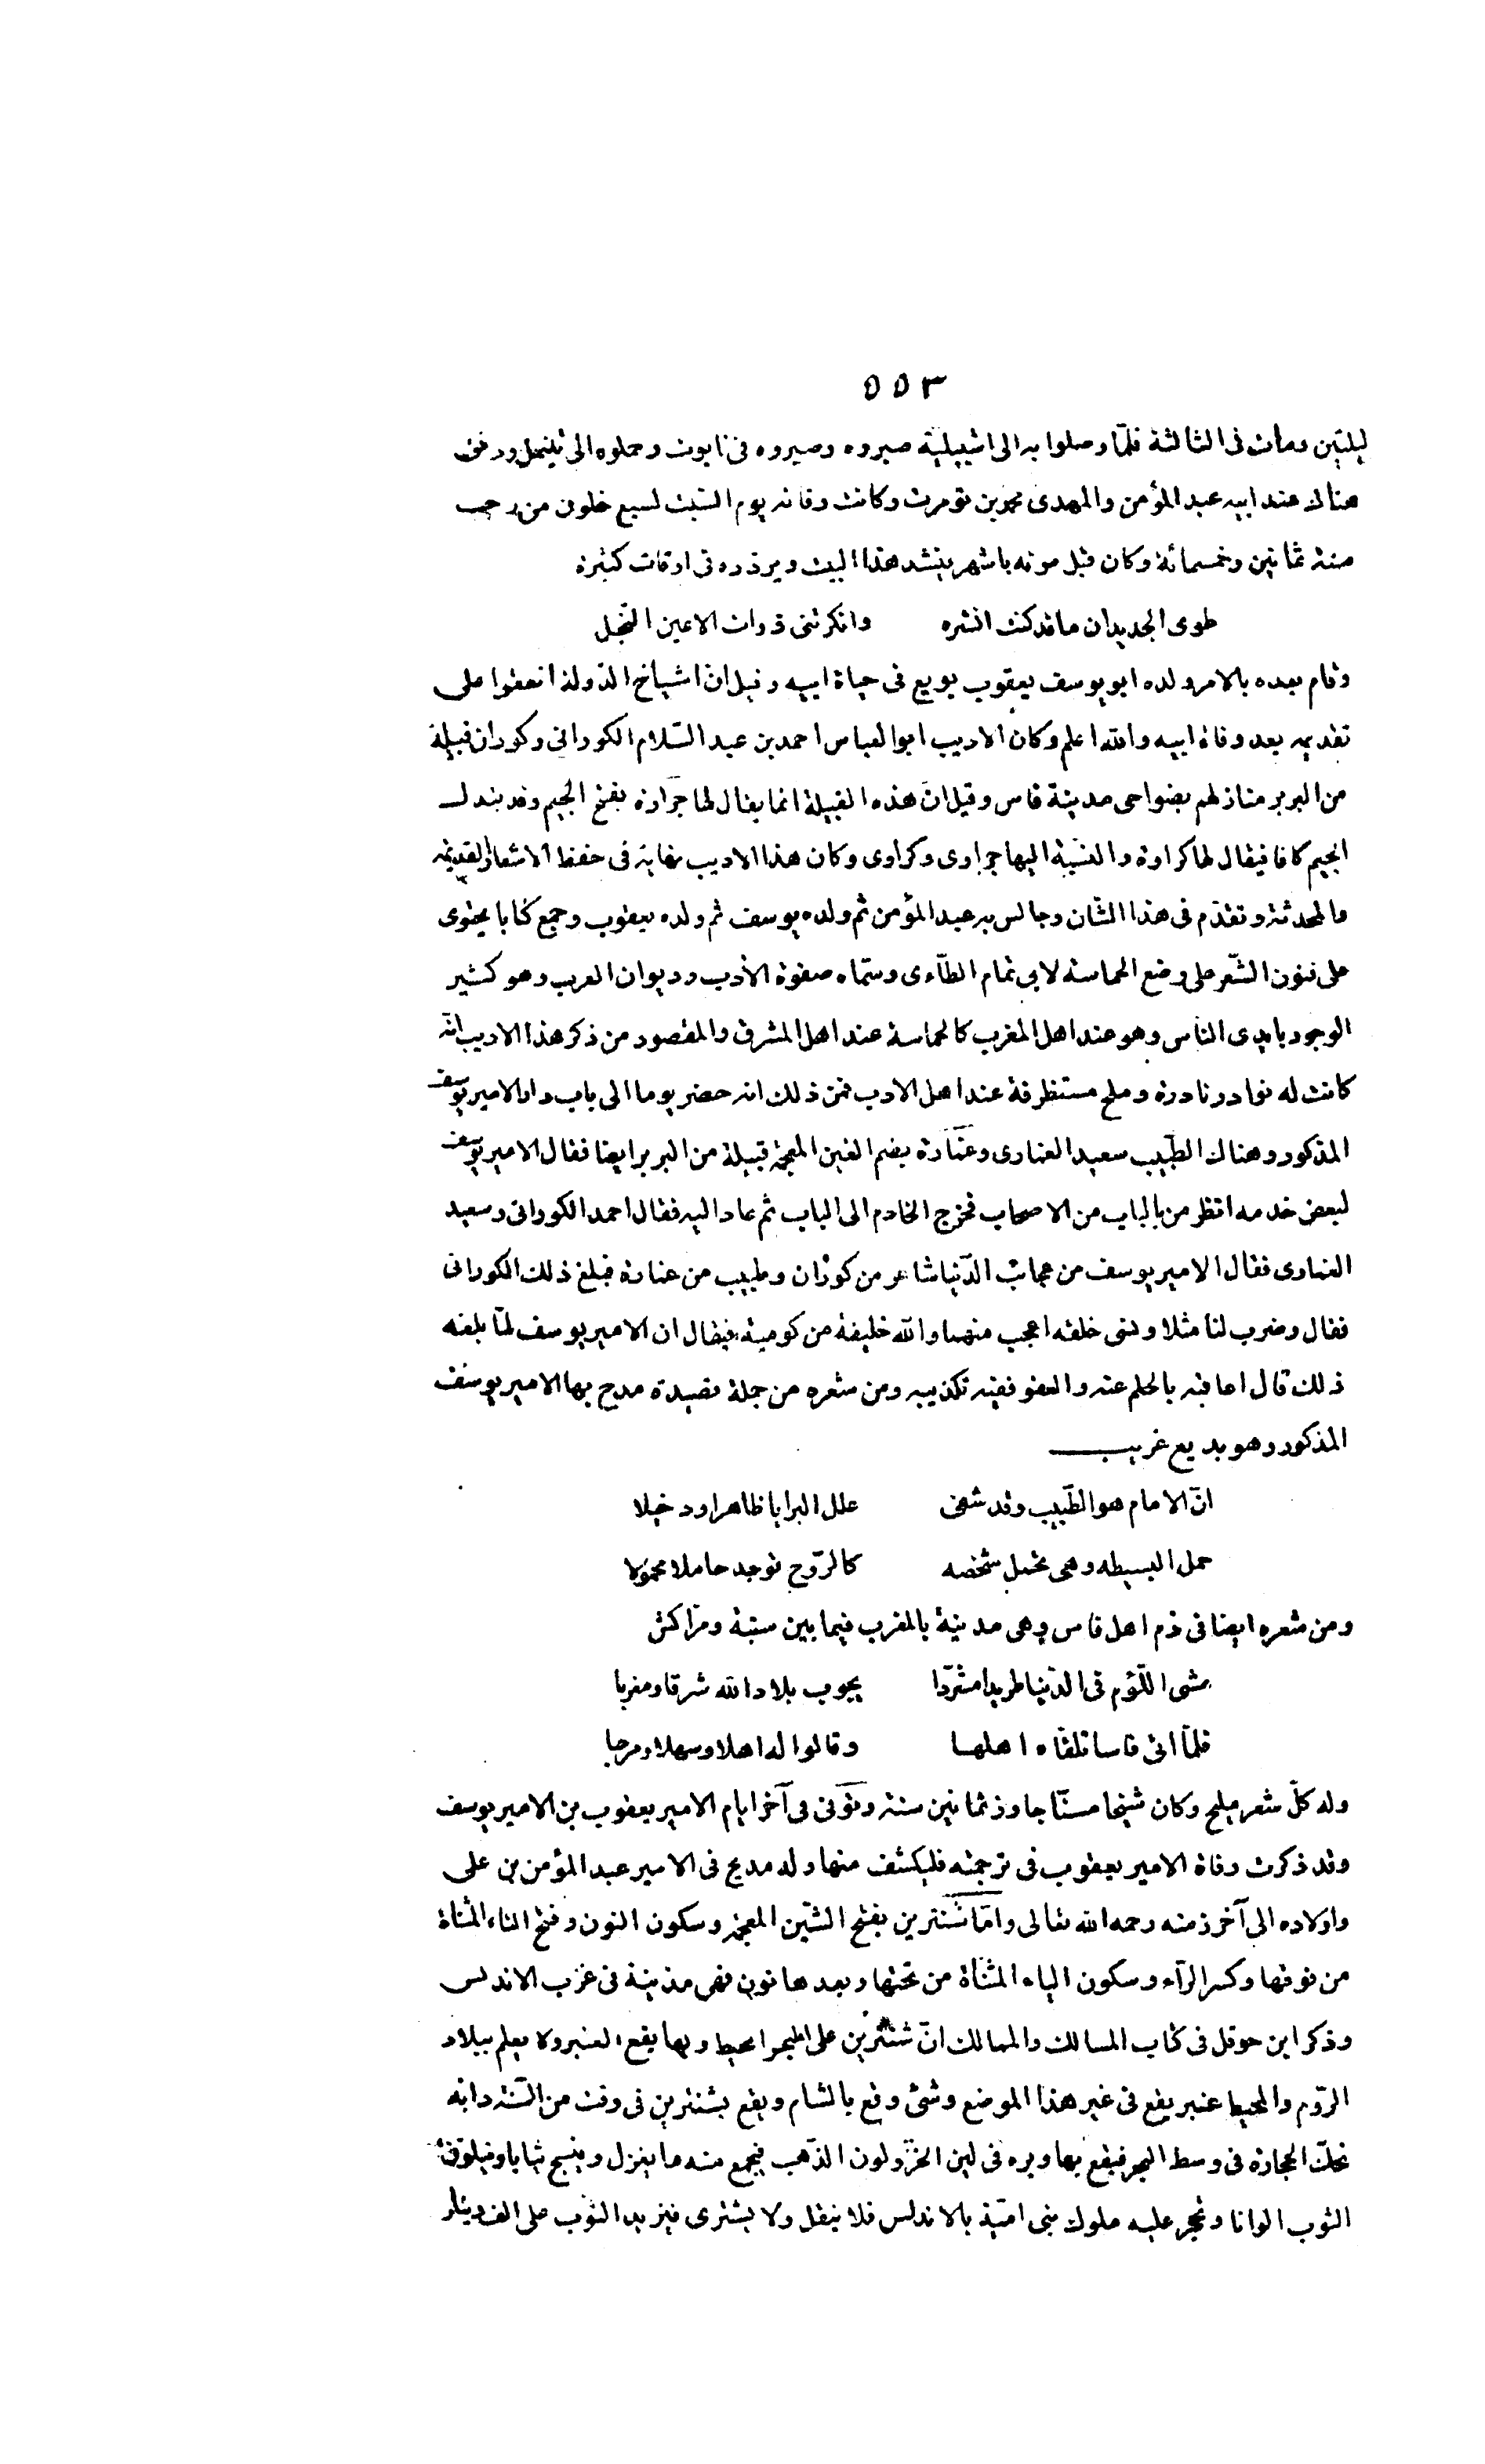 ٥٥٣
ليلتين ومات فى الثالثة فلمّا وصلوا به الى اشبيلية صبروه وصيروه فى تابوت وحملوه الى تينمل ودفن
هناك عند ابيه عبد المؤمن والمهدى محمد بن تومرت وكانت وفاته يوم السّبت لسبع خلون من رجب
سنة ثمانين وخمسمائة وكان قبل موته باشهر ينشد هذا البيت ويردده فى اوقات كثيرة
طوى الجديدان ما قد كنت انشره وانكرتنى ذوات الاعين النّجل
وقام بعده بالامر ولده ابو يوسف يعقوب بويع فى حياة ابيه وقيل ان اشياخ الدّولة اتفقوا على
تقديمه بعد وفاة ابيه والله اعلم وكان الاديب ابو العباس احمد بن عبد السّلام الكورانى وكوران قبيلة
من البربر منازلهم بضواحى مدينة فاس وقيل انّ هذه القبيلة انما يقال لها جرّاوة بفتح الجيم وقد تبدل
الجيم كافا فيقال لها كراوة والنسّبة اليها جراوى وكراوى وكان هذا الاديب نهاية فى حفظ الاشعار القديمة
والمحدثة وتقدّم فى هذا الشّان وجالس به عبد المؤمن ثم ولده يوسف ثم ولده يعقوب وجمع كتابا يحتوى
على فنون الشّعر على وضع الحماسة لابى تمام الطّاءى وسمّاه صفوة الأدب وديوان العرب وهو كثير
الوجود بايدى النّاس وهو عند اهل المغرب كالحماسة عند اهل المشرق والمقصود من ذكر هذا الاديب انّه
كانت له نوادر نادرة وملح مستظرفة عند اهل الادب فمن ذلك انه حضر يوما الى باب دار الامير يوسف
المذكور وهناك الطّبيب سعيد الغمارى وغمارة بضم الغين المعجمة قبيلة من البربر ايضا فقال الامير يوسف
لبعض خدمه انظر من بالباب من الاصحاب فخرج الخادم الى الباب ثم عاد اليه فقال احمد الكورانى وسعيد
الغمارى فقال الامير يوسف من عجائب الدّنيا شاعر من كوران وطبيب من غمارة فبلغ ذلك الكورانى
فقال وضرب لنا مثلا ونسى خلقه اعجب منهما والله خليفة من كومية فيقال ان الامير يوسف لمّا بلغه
ذلك قال اعاقبه بالحلم عنه والعفو ففيه تكذيبه ومن شعره من جملة قصيدة مدح بها الامير يوسف
المذكور وهو بديع غريب
انّ الامام هو الطّبيب وقد شفى علل البرايا ظاهرا ودخيلا
حمل البسيطه وهى تحمل شخصه كالرّوح توجد حاملا محمولا
ومن شعره ايضا فى ذم اهل فاس وهى مدينة بالمغرب فيما بين سبتة ومرّاكش
مشى اللّؤم فى الدّنيا طريدا مشرّدا يجوب بلاد الله شرقا ومغربا
فلمّا اتى فاسا تلقّاه اهلها وقالوا له اهلا وسهلا ومرحبا
وله كلّ شعر مليح وكان شيخا مسنّا جاوز ثمانين سنة وتوّفى فى آخر ايام الامير يعقوب بن الامير يوسف
وقد ذكرت وفاة الامير يعقوب فى ترجمته فليكشف منها وله مديح فى الامير عبد المؤمن بن على
واولاده الى آخر زمنه رحمه الله تعالى وامّا شنترين بفتح الشّين المعجمة وسكون النون وفتح التاء المثناة
من فوقها وكسر الرّآء وسكون الياء المثنّاة من تحتها وبعدها نون فهى مدينة فى غرب الاندلس
وذكر ابن حوقل فى كتاب المسالك والممالك انّ شنترين على البحر المحيط وبها يقع العنبر ولا يعلم ببلاد
الرّوم والمحيط عنبر يقع فى غير هذا الموضع وشئ وقع بالشام ويقع بشنترين فى وقت من السّنة دابّه
تحكّ الحجارة فى وسط البحر فيقع بها وبره فى لين الخزّ ولون الذّهب فيجمع منه ما ينزل وينسج ثيابا وفيلوّن
الثوب الوانا وتحجر عليه ملوك بنى اميّة بالاندلس فلا ينقل ولا يشترى فيزيد الثوب على الف دينار